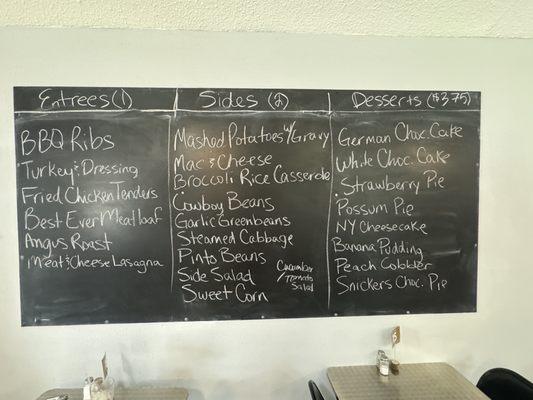 Entrees (1)
BBQ Ribs
Turkey & Dressing
Fried Chicken Tenders
Best Ever Meatloaf
Angus Roast
Meat & Cheese Lasagna
Sides (2)
Mashed Potatoes w/ Gravy
Mac & Cheese
Broccoli Rice Casserole
Cowboy Beans
Garlic Greenbeans
Steamed Cabbage
Pinto Beans
Side Salad
Cucumber
/Tomato
Salad
Sweet Corn
Desserts ($3.75)
German Choc. Cake
White Choc. Cake
Strawberry Pie
Possum Pie
NY Cheesecake
Banana Pudding
Peach Cobbler
Snickers Choc. Pie